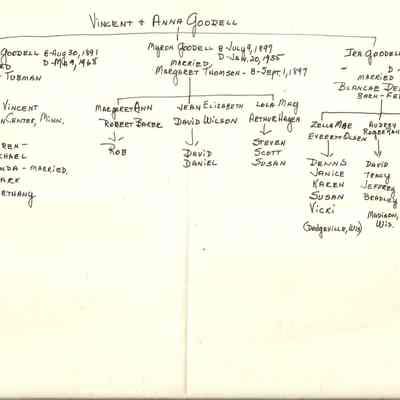 Vincent + Anna Goodell
Goodell B-Aug 30, 1891
D-Mar 9, 1968
Tubman
Vincent
Center, Minn.
Married,
Bethany
Myron Goodell B-July 9, 1897
D-Jan. 20, 1955
Married
Margaret Thomson - B-Sept. 1, 1897
Margaret Ann
Robert Baker
Rob
Jean Elizabeth
David Wilson
David
Daniel
Lola May
Arthur Hagen
Steven
Scott
Susan
Ira Goodell
D-
Married
Blanche
Zella Mae
Everett Olsen
Dennis
Janice
Karen
Susan
Vicki
(Dodgeville, Wis)
Audrey
Roger
David
Tracy
Jeffrey
Bradley
Madison,
Wis.